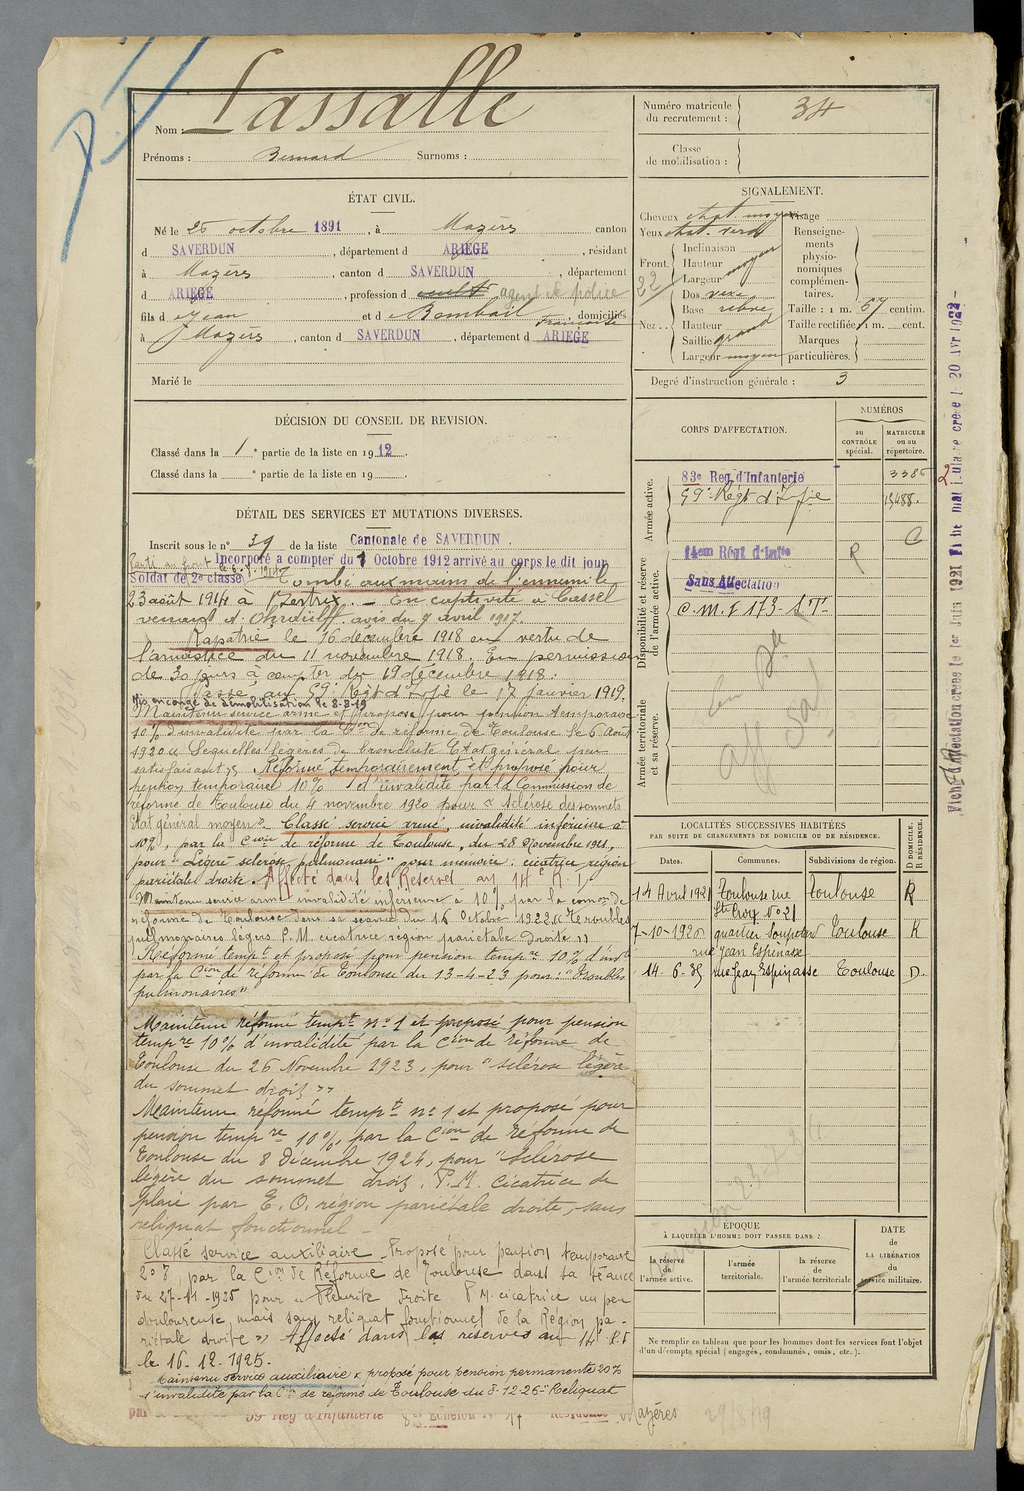 Nom : Lassalle
Prénoms : Bernard Surnoms :
Numéro matricule du recrutement : 34
Classe de mobilisation :
ÉTAT CIVIL.
Né le 25 octobre 1891, à Mazères canton
d SAVERDUN, département d ARIEGE, résidant
à Mazères, canton d SAVERDUN, département
d ARIEGE, profession d agent de police
fils d Jean et d Bombail Françoise, domiciliés
à Mazères, canton d SAVERDUN, département d ARIEGE
Marié le
DÉCISION DU CONSEIL DE REVISION.
Classé dans la 1e partie de la liste en 1912.
Classé dans la e partie de la liste en 19
DÉTAIL DES SERVICES ET MUTATIONS DIVERSES.
Inscrit sous le n° 39 de la liste Cantonale de SAVERDUN.
Incorporé à compter du 1 Octobre 1912 arrivé au corps le dit jour
Soldat de 2e classe Tombé aux mains de l'ennemi le
23 août 1914 à Bertrix. — En captivité à Cassel
venant d' Ohrdruff. avis du 7 avril 1917.
Rapatrié le 16 décembre 1918 en vertu de
l'armistice du 11 novembre 1918. En permission
de 30 jours à compter du 19 décembre 1918.
Passé au 59e Régt d'Infie le 17 janvier 1919.
Mis en congé de démobilisation le 8-8-19
Maintenu service armé et proposé pour pension temporaire
10% d'invalidité par la Cion de réforme de Toulouse le 6 Août
1920 "Sequelles légères de bronchite Etat général peu
satisfaisant". Réformé temporairement et proposé pour
pension temporaire 10% d'invalidité par la Commission de
réforme de Toulouse du 4 novembre 1920 pour "Sclérose des sommets
Etat général moyen". Classé service armé, invalidité inférieure à
10%, par la Cion de réforme de Toulouse, du 28 Novembre 1921,
pour "Légère sclérose pulmonaire" pour mémoire : cicatrice région
pariétale droite. Affecté dans les Réserves au 14e R.I.
Maintenu service armé invalidité inférieure à 10% par la comon de
réforme de Toulouse dans sa séance du 16 Octobre 1922 "Troubles
pulmonaires légers P.M. cicatrice région pariétale droite"
Réformé tempt et proposé pour pension tempre 10% d'inv
par la Cion de réforme de Toulouse du 13-4-23 pour : "Troubles
pulmonaires"
Maintenu réformé tempt n°1 et proposé pour pension
tempre 10% d'invalidité par la Cion de réforme de
Toulouse du 26 Novembre 1923, pour "sclérose légère
du sommet droit"
Maintenu réformé tempt n°1 et proposé pour
pension tempre 10%, par la Cion de Réforme de
Toulouse du 8 Décembre 1924, pour "Sclérose
légère du sommet droit. P.M. Cicatrice de
plaie par E.O. région pariétale droite, sans
reliquat fonctionnel —
Classé service auxiliaire. Proposé pour pension temporaire
20%, par la Cion de Réforme de Toulouse dans sa séance
du 27-11-1925 pour "Pleurite droite P.M. cicatrice un peu
douloureuse, mais sans reliquat fonctionnel de la Région pa-
riétale droite" Affecté dans les réserves au 14e R.I
le 16-12-1925.
Maintenu service auxiliaire & proposé pour pension permanente 20%
d'invalidité par la Cion de réforme de Toulouse du 8-12-26 : Reliquat
par 59 Rég d'Infanterie Echelon N° 17 Mazères 29/8/19
SIGNALEMENT.
Cheveux chat. moyen
Yeux chat. verd
Front. Inclinaison
Hauteur moyen
Largeur
Nez .. Dos vexe
Base relevé
Hauteur
Saillie grand
Largeur moyen
Visage
Renseignements physionomiques complémentaires.
Taille : 1 m. 57 centim.
Taille rectifiée 1 m. cent.
Marques particulières.
Degré d'instruction générale : 3
CORPS D'AFFECTATION.
NUMÉROS
au CONTRÔLE spécial.
MATRICULE ou au répertoire.
Armée active.
83e Reg. d'Infanterie
59e Régt d'Infie 15488.
Disponibilité et réserve de l'armée active.
14em Régt d'Infie R
Sans Affectation
C.M.I 173 S.T.
Armée territoriale et sa réserve.
aff Sal
Fiche d'affectation créée le 1er Juin 1921 Fiche matriculaire créée le 20 Avr 1922
LOCALITÉS SUCCESSIVES HABITÉES
PAR SUITE DE CHANGEMENTS DE DOMICILE OU DE RÉSIDENCE.
Dates. Communes. Subdivisions de région. D DOMICILE. R RÉSIDENCE.
14 Avril 1921 Toulouse rue Ste Croix N° 21 Toulouse R
7-10-1920 quartier Soupetard rue Jean Espinasse Toulouse R
14-6-35 rue Jean Espinasse Toulouse D.
ÉPOQUE
À LAQUELLE L'HOMME DOIT PASSER DANS :
la réserve de l'armée active.
l'armée territoriale.
la réserve de l'armée territoriale
DATE de LA LIBÉRATION du service militaire.
Ne remplir ce tableau que pour les hommes dont les services font l'objet
d'un décompte spécial (engagés, condamnés, omis, etc.).